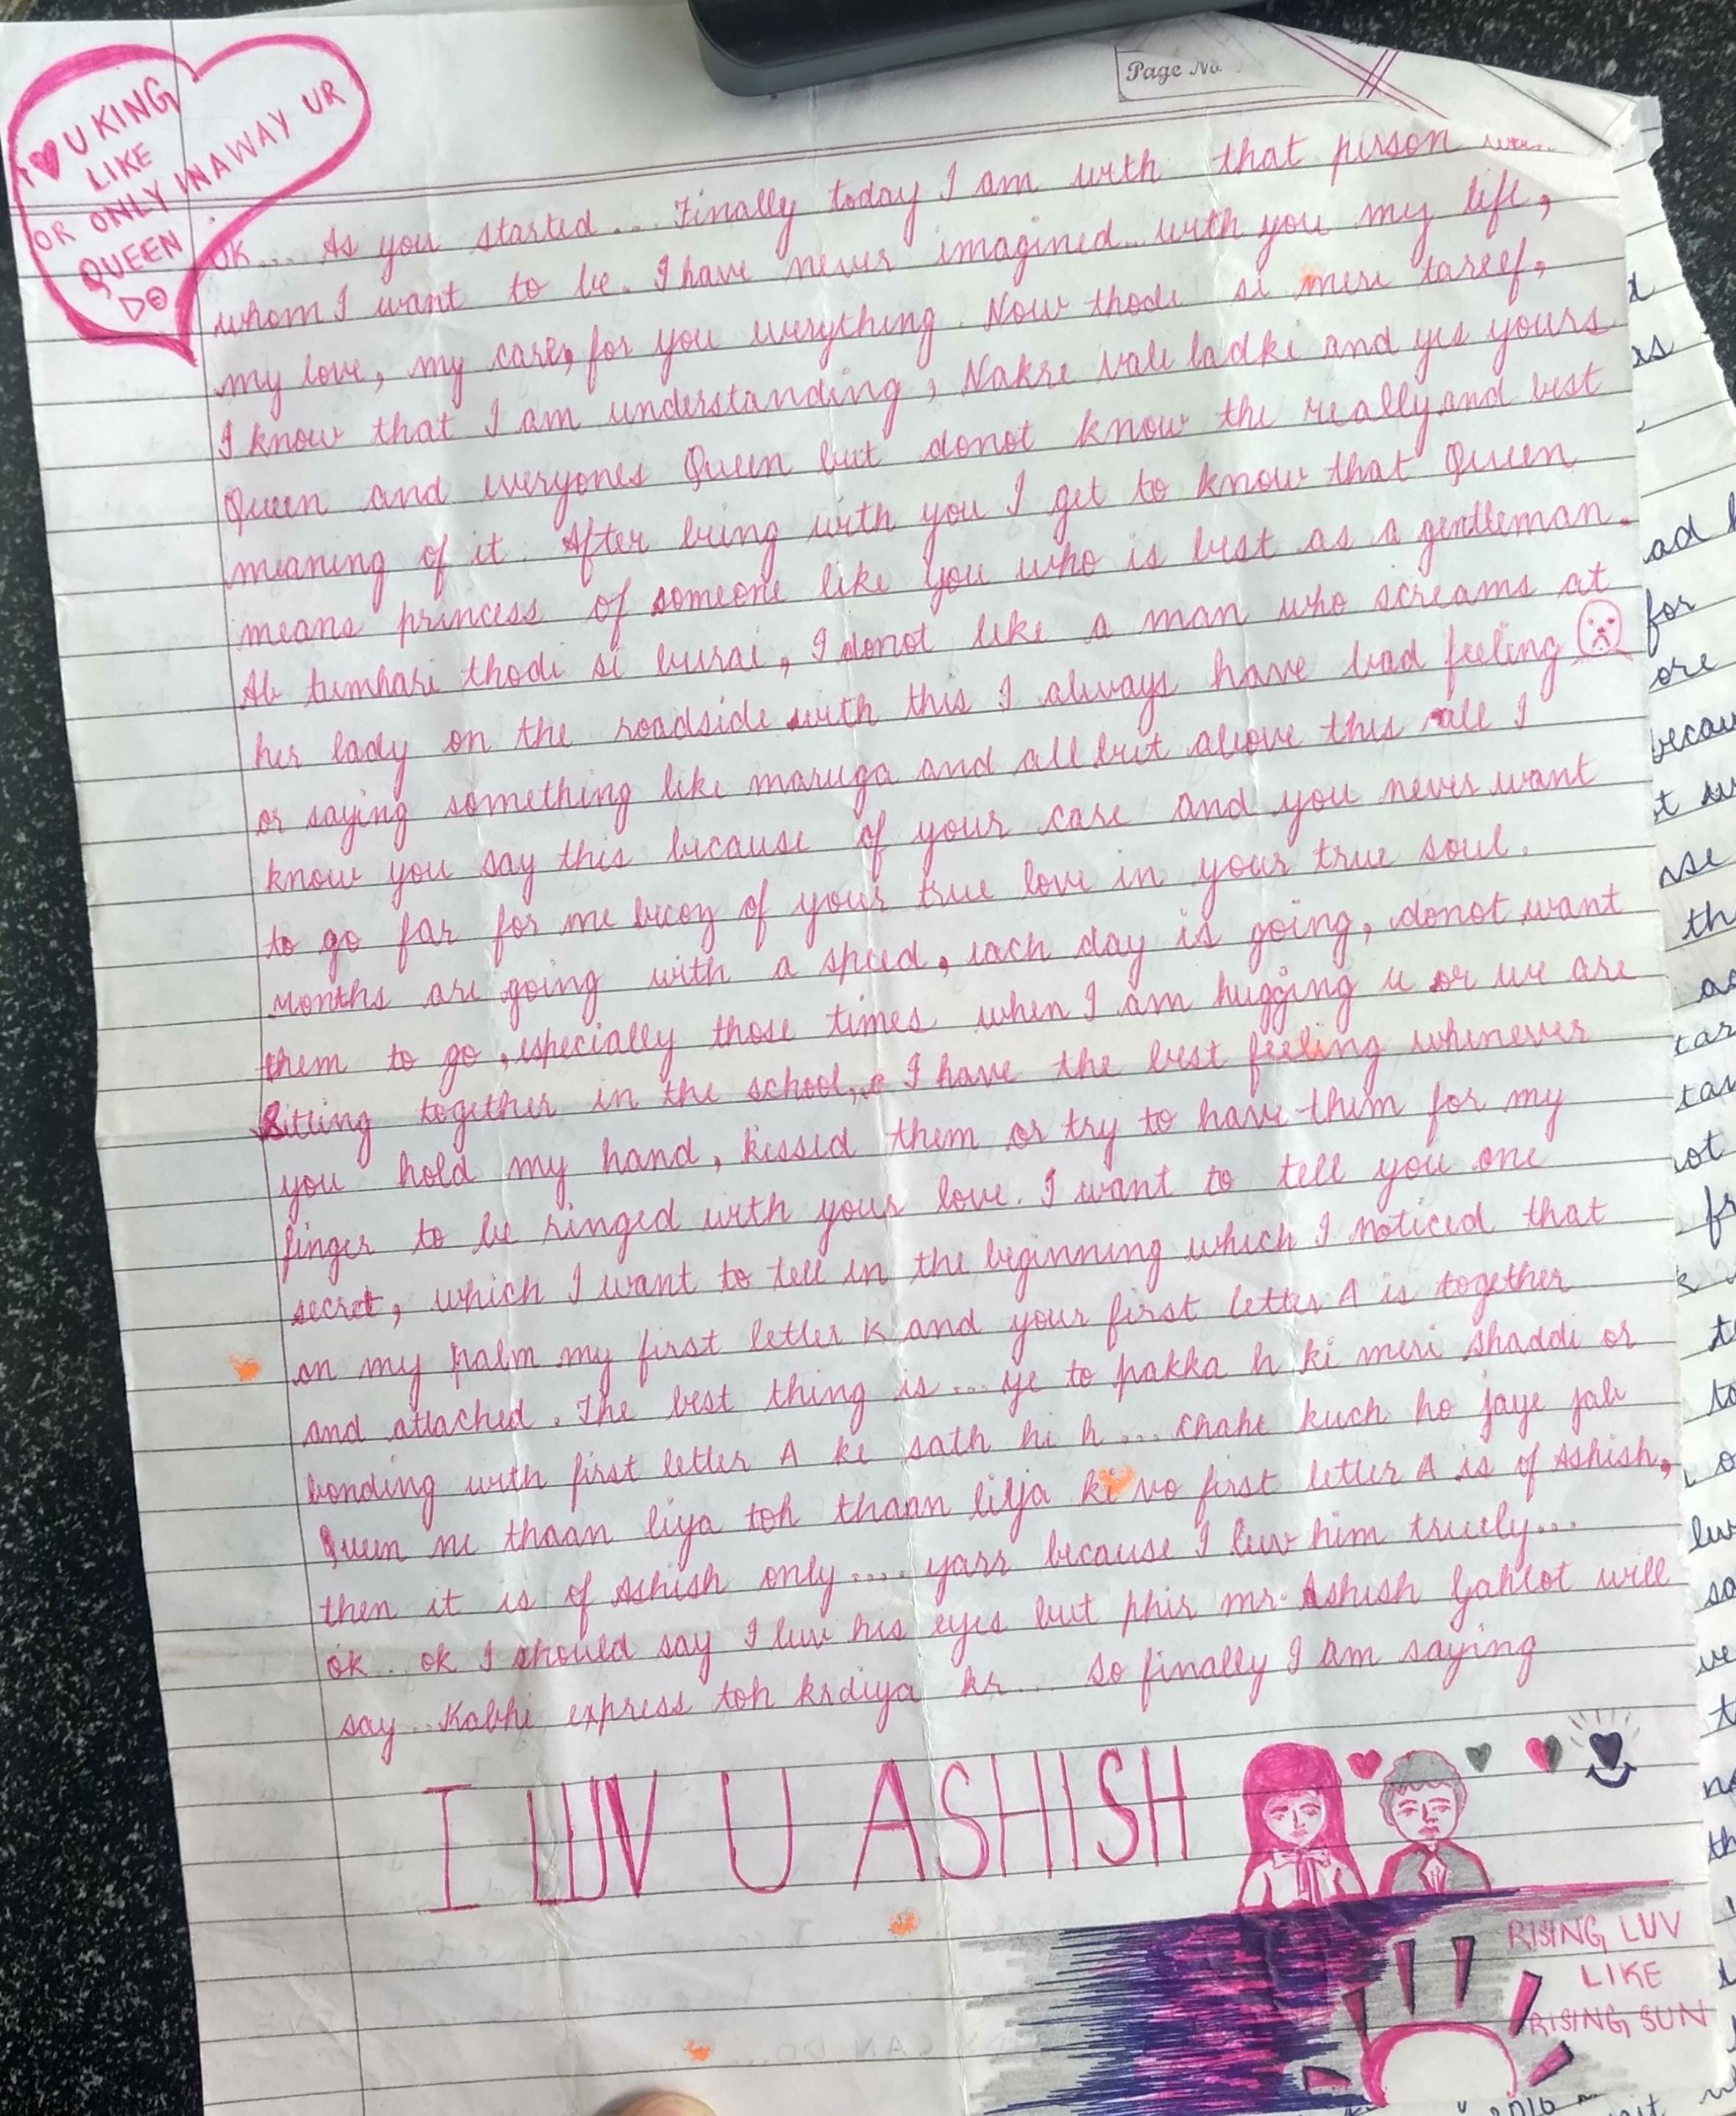 Page No.
I ♥ U KING
LIKE
OR ONLY IN A WAY UR
QUEEN
DO
OK... As you started... Finally today I am with that person
whom I want to be. I have never imagined.. with you my life,
my love, my care, for you everything. Now thodi si meri tareef,
I know that I am understanding, Nakre vali ladki and yes yours
Queen and everyones Queen but donot know the really and best
meaning of it. After being with you I get to know that Queen
means princess of someone like you who is best as a gentleman.
Ab tumhari thodi si burai, I donot like a man who screams at
her lady on the roadside with this I always have bad feeling
or saying something like maruga and all but above this all I
know you say this because of your care and you never want
to go far for me becoz of your true love in your true soul.
Months are going with a speed, each day is going, donot want
them to go, especially those times when I am hugging u or we are
Sitting together in the school,.. I have the best feeling whenever
you hold my hand, kissed them or try to have them for my
finger to be ringed with your love. I want to tell you one
secret, which I want to tell in the beginning which I noticed that
on my palm my first letter K and your first letter A is together
and attached. The best thing is... ye to pakka h ki meri shaddi or
bonding with first letter A ke sath hi h... chahe kuch ho jaye jab
Queen ne thaan liya toh thaan liya ki vo first letter A is of Ashish,
then it is of Ashish only.... yarr because I luv him truely...
ok.. ok I should say I luv his eyes but phir mr. Ashish Gahlot will
say.. Kabhi express toh krdiya kr... so finally I am saying
I LUV U ASHISH
RISING LUV
LIKE
RISING SUN